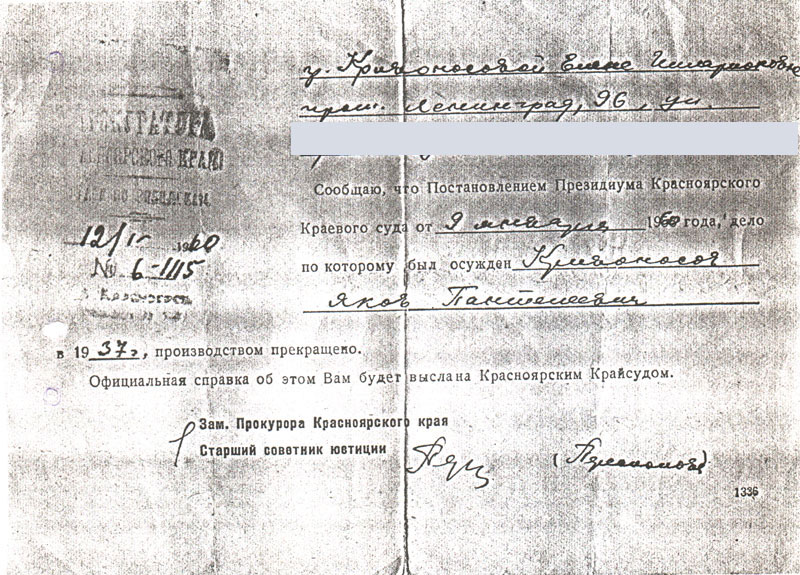 гр. Кривоносовой Елене Илларионовне
Ленинград, 96, ул.
ПРОКУРАТУРА
КРАСНОЯРСКОГО КРАЯ
12/I 1960
№ 6-1115
г. Красноярск
Сообщаю, что Постановлением Президиума Красноярского
Краевого суда от 9 января 1960 года, дело
по которому был осужден Кривоносов
Яков Пантелеевич
в 1937г, производством прекращено.
Официальная справка об этом Вам будет выслана Красноярским Крайсудом.
Зам. Прокурора Красноярского края
Старший советник юстиции
1336